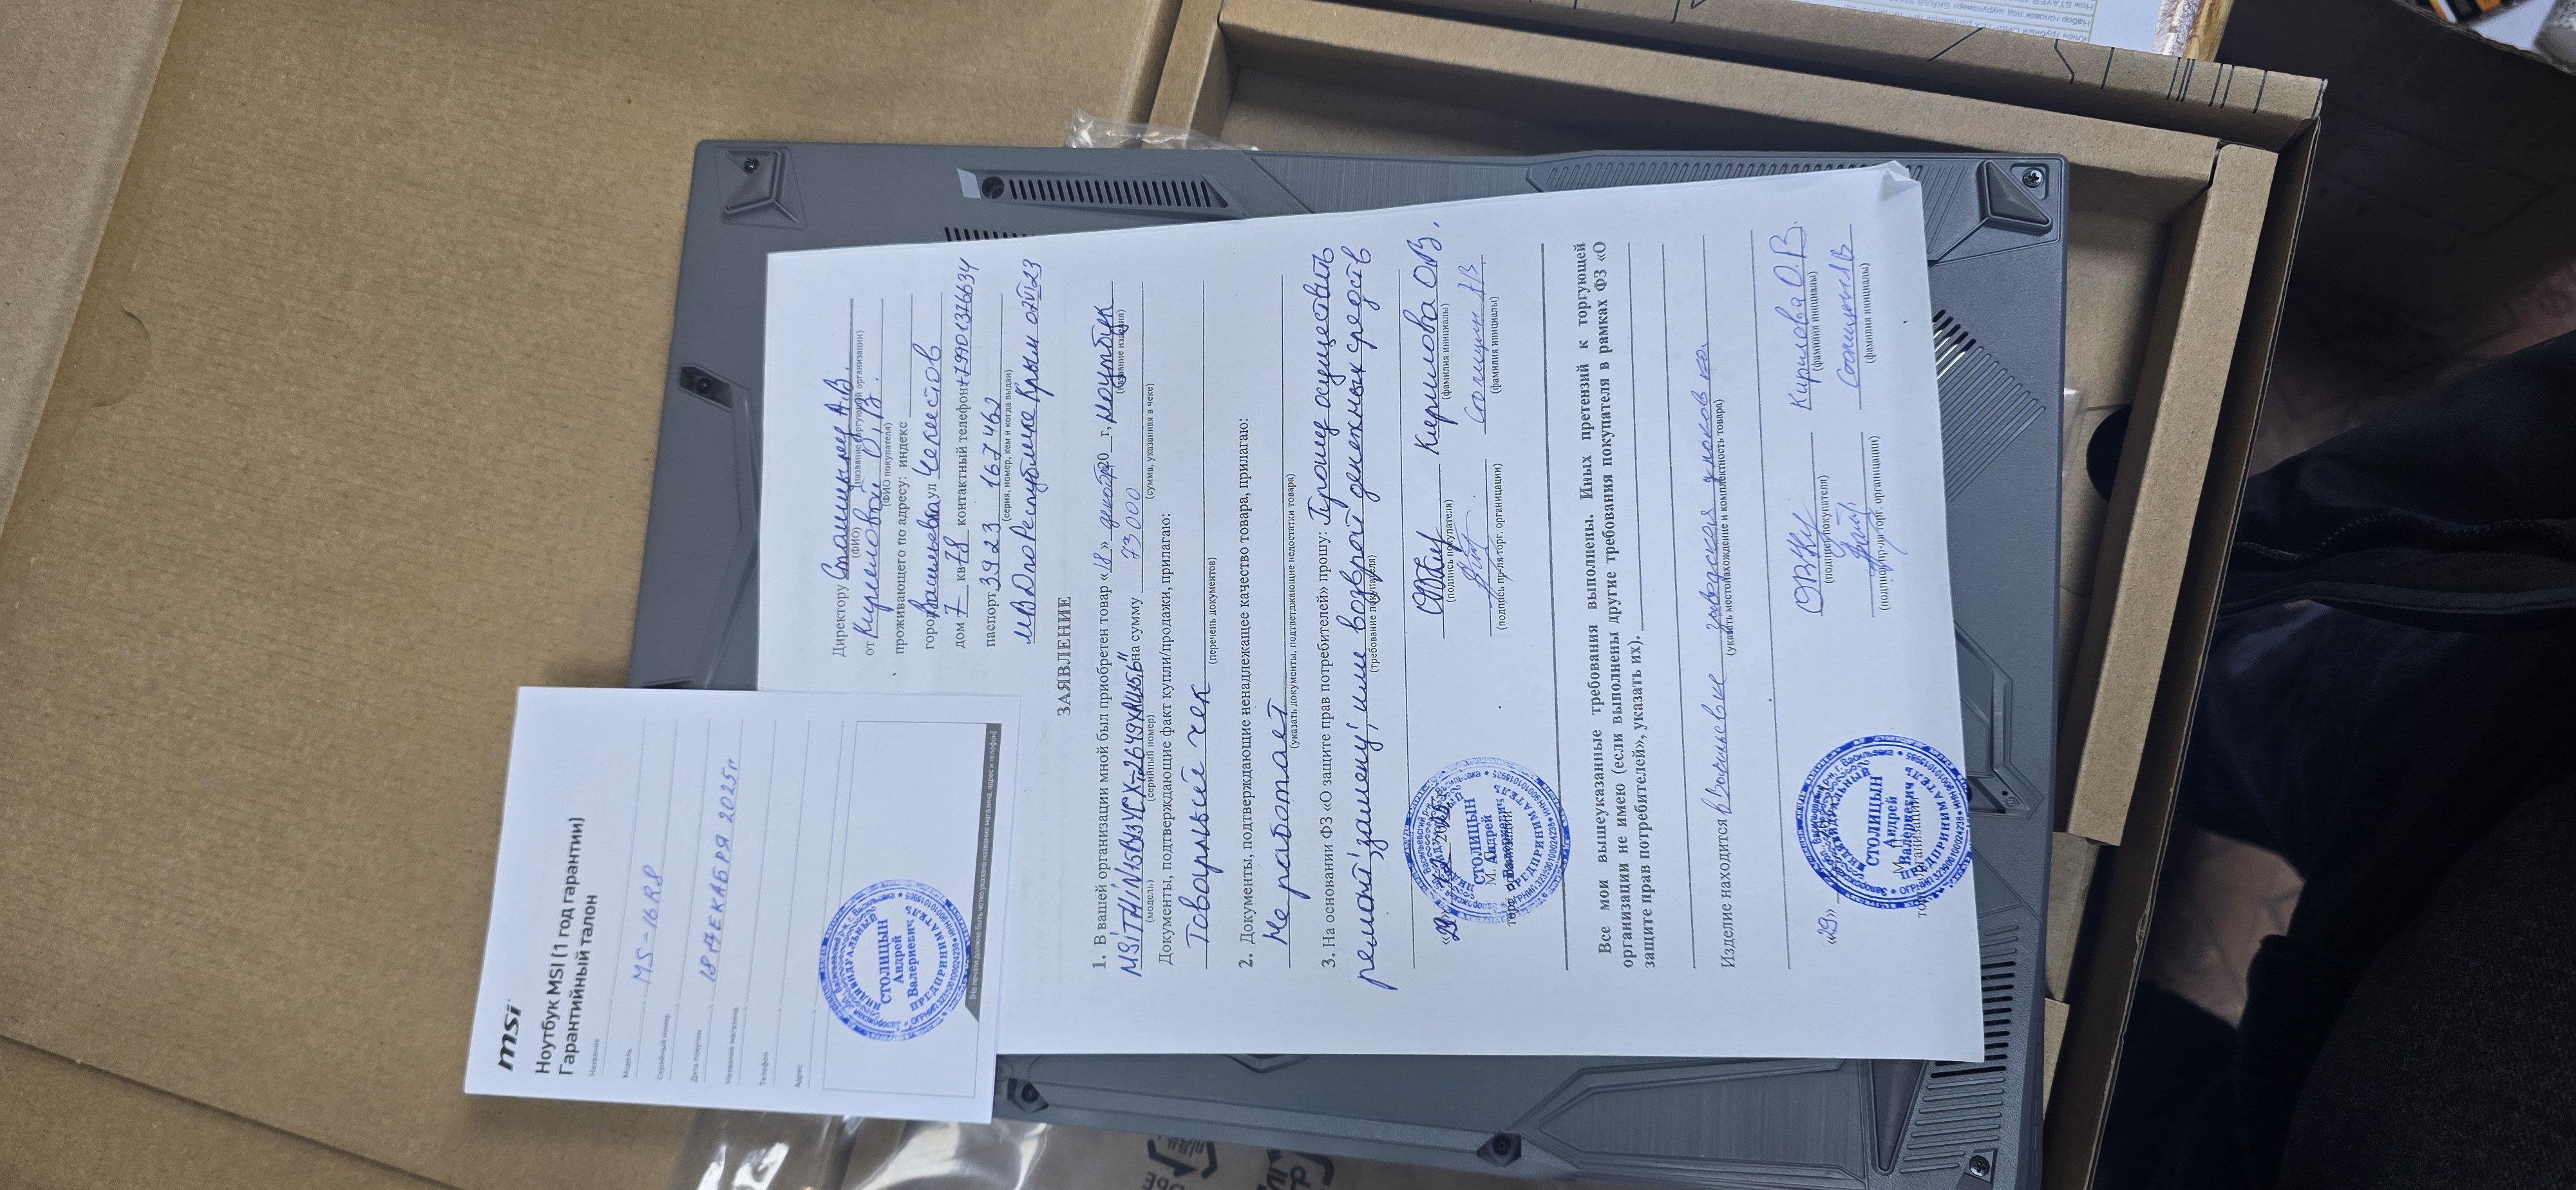 msi
Ноутбук MSI (1 год гарантии)
Гарантийный талон
Название
Модель MS-16R8
Серийный номер
Дата покупки 18 ДЕКАБРЯ 2025г
Название магазина
Телефон
Адрес
ИНДИВИДУАЛЬНЫЙ
СТОЛИЦЫН
Андрей
Валериевич
ПРЕДПРИНИМАТЕЛЬ
(На печати должно быть четко указано название магазина, адрес и телефон)
Директору Столицыну А.В.
(ФИО) (название торгующей организации)
от Кирилловой О.В.
(ФИО покупателя)
проживающего по адресу: индекс
город Васильевка ул Чекистов
дом 7 кв 78 контактный телефон +79901376634
паспорт 3923 167462
(серия, номер, кем и когда выдан)
МВД по Республике Крым
ЗАЯВЛЕНИЕ
1. В вашей организации мной был приобретен товар «18» декабря 20 г, ноутбук
(название изделия)
MSI THIN 15 B13UCX-2649XRU 15,6" на сумму 73000
(модель) (серийный номер) (сумма, указанная в чеке)
Документы, подтверждающие факт купли/продажи, прилагаю:
Товарный чек
(перечень документов)
2. Документы, подтверждающие ненадлежащее качество товара, прилагаю:
Не работает
(указать документы, подтверждающие недостатки товара)
3. На основании ФЗ «О защите прав потребителей» прошу: Прошу осуществить
ремонт, замену, или возврат денежных средств
(требование покупателя)
Кириллова О.В.
(подпись покупателя) (фамилия инициалы)
«29»
Столицын А.В
(подпись пр-ля торг. организации) (фамилия инициалы)
М.
торг. организации
ИНДИВИДУАЛЬНЫЙ
СТОЛИЦЫН
Андрей
Валериевич
ПРЕДПРИНИМАТЕЛЬ
Все мои вышеуказанные требования выполнены. Иных претензий к торгующей
организации не имею (если выполнены другие требования покупателя в рамках ФЗ «О
защите прав потребителей», указать их).
Изделие находится в Васильевке заводская упаковка
(указать местонахождение и комплектность товара)
Кириллова О.В.
(подпись покупателя) (фамилия инициалы)
«29»
Столицын А.В
(подпись пр-ля торг. организации) (фамилия инициалы)
ИНДИВИДУАЛЬНЫЙ
СТОЛИЦЫН
Андрей
Валериевич
ПРЕДПРИНИМАТЕЛЬ